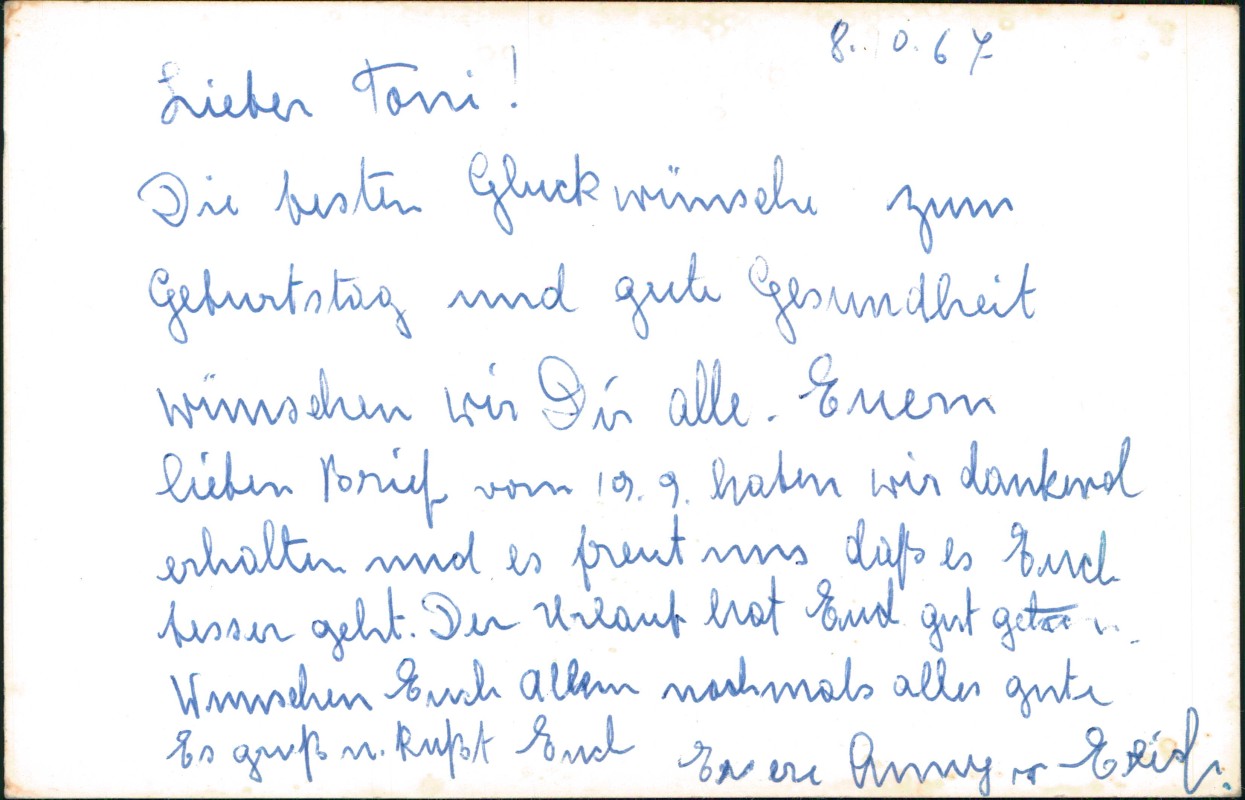 8. 0. 67
Lieber Toni!
Die besten Gluckwünsche zum
Geburtstag und gute Gesundheit
wünschen wir Dir alle. Euern
lieben Brief vom 19. 9. haben wir dankend
erhalten und es freut uns daß es Euch
besser geht. Der Urlaub hat Euch gut getan u.
Wunschen Euch Allen nochmals alles gute
Es gruß u. kußt Euch Euere Anny u Erich.